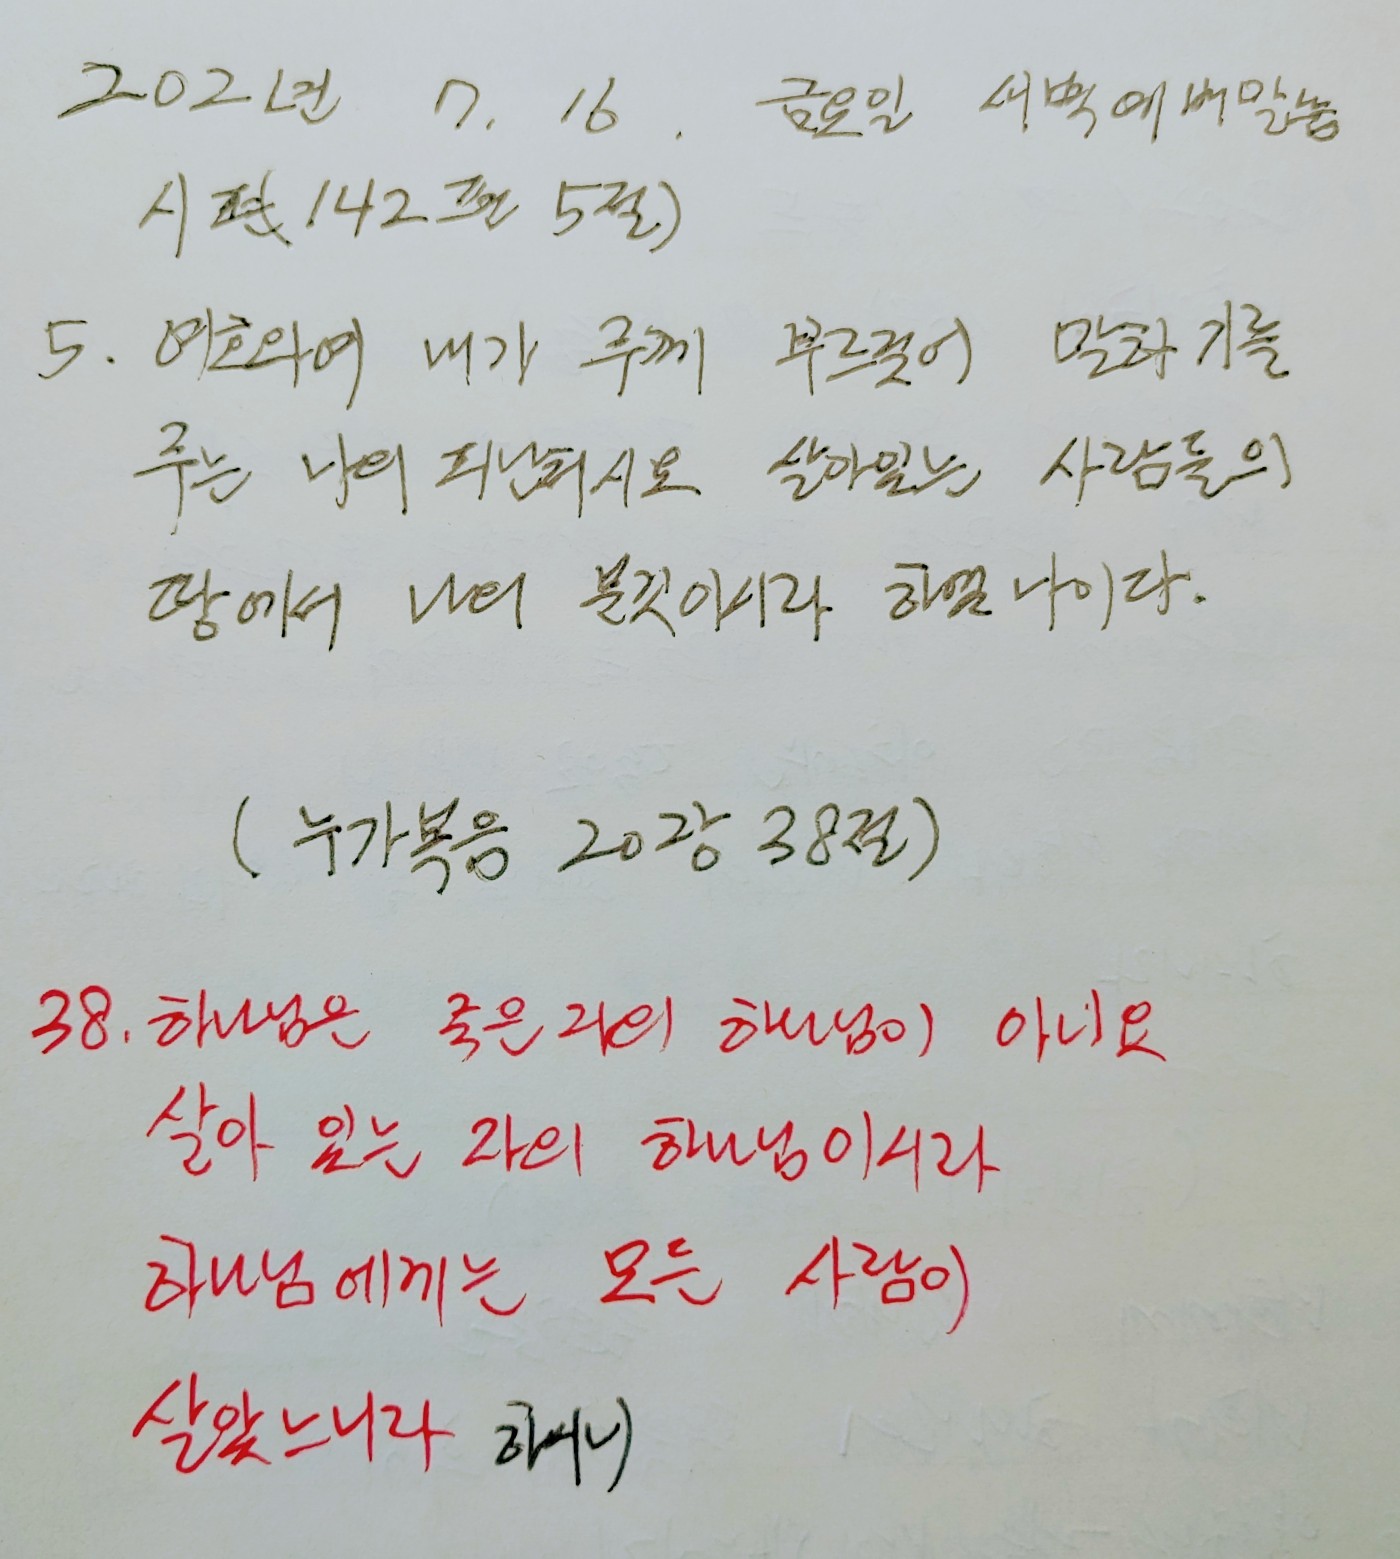 2021년 7. 16. 금요일 새벽예배말씀
시편 142편 5절)
5. 여호와여 내가 주께 부르짖어 말하기를
주는 나의 피난처시요 살아있는 사람들의
땅에서 나의 분깃이시라 하였나이다.
(누가복음 20장 38절)
38. 하나님은 죽은 자의 하나님이 아니요
살아 있는 자의 하나님이시라
하나님에게는 모든 사람이
살았느니라 하시니